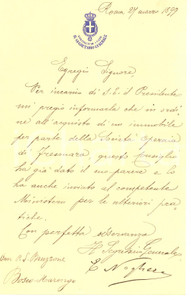 Roma 29 marzo 1899
Egregio Signore
Per incarico di S. E. il Presidente
mi pregio informarla che in ordi-
ne all'acquisto di un immobile
per parte della Società operaia
di Frescura, questo Consiglio
ha già dato il suo parere e lo
ha anche inviato al competente
Ministero per le ulteriori pra-
tiche.
Con perfetta osservanza
Il Segretario Generale
Bosco Marengo